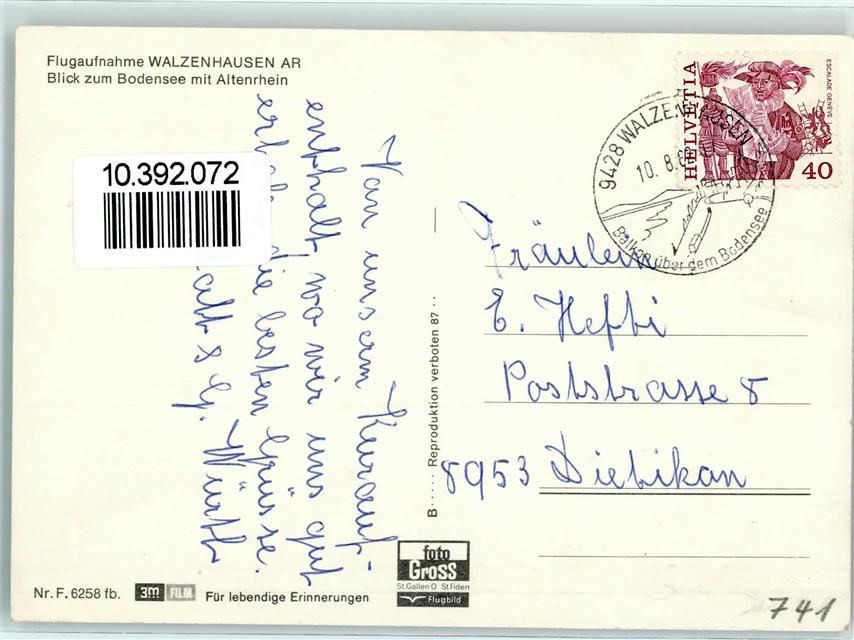 Flugaufnahme WALZENHAUSEN AR
Blick zum Bodensee mit Altenrhein
10.392.072
Von unserm Kurauf-
enthalt wo wir uns gut
die besten Grüsse.
& G. Würth
B····· Reproduktion verboten 87 ··
HELVETIA
ESCALADE GENÈVE
40
9428 WALZENHAUSEN
10.8.
Balkon über dem Bodensee
Fräulein
E. Hefti
Poststrasse 8
8953 Dietikon
Nr. F. 6258 fb.
3M FILM
Für lebendige Erinnerungen
foto
Gross
St.Gallen O St.Fiden
Flugbild
741